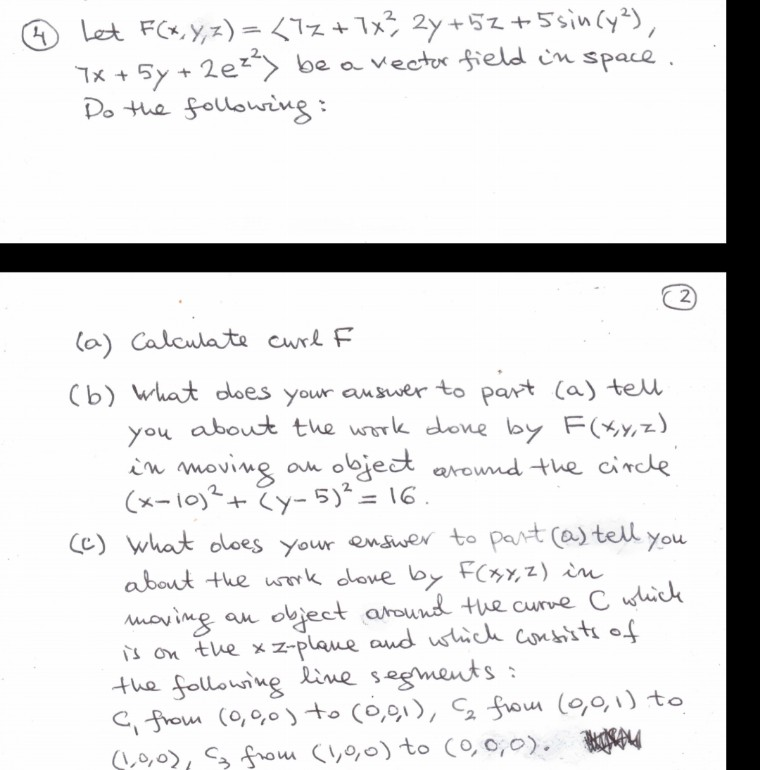 ④ Let F(x,y,z) = <7z + 7x², 2y + 5z + 5 sin(y²),
7x + 5y + 2e^{z²}> be a vector field in space.
Do the following:
②
(a) Calculate curl F
(b) What does your answer to part (a) tell
you about the work done by F(x,y,z)
in moving an object around the circle
(x-10)² + (y-5)² = 16.
(c) What does your answer to part (a) tell you
about the work done by F(x,y,z) in
moving an object around the curve C which
is on the xz-plane and which consists of
the following line segments:
C₁ from (0,0,0) to (0,0,1), C₂ from (0,0,1) to
(1,0,0), C₃ from (1,0,0) to (0,0,0).